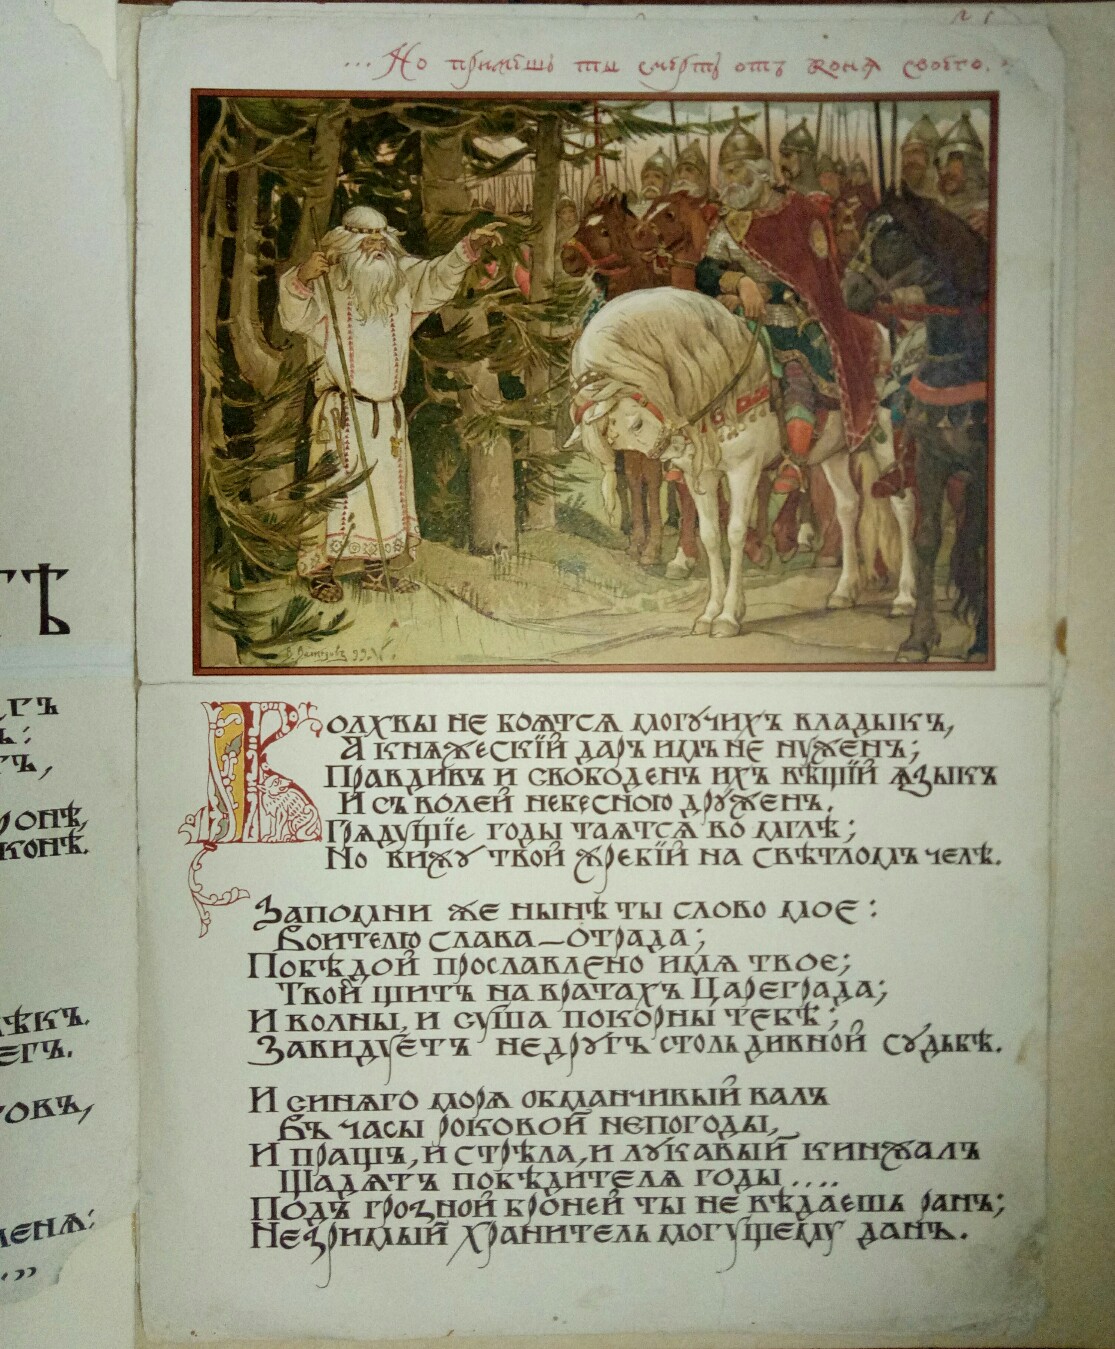 ... Но примешь ты смерть отъ коня своего.
В. Васнецовъ 99.
Волхвы не боятся могучихъ владыкъ,
А княжескій даръ имъ не нуженъ;
Правдивъ и свободенъ ихъ вѣщій языкъ
И съ волей небесною друженъ.
Грядущіе годы таятся во мглѣ;
Но вижу твой жребій на свѣтломъ челѣ.
Запомни же нынѣ ты слово мое:
Воителю слава — отрада;
Побѣдой прославлено имя твое;
Твой щитъ на вратахъ Цареграда;
И волны, и суша покорны тебѣ;
Завидуетъ недругъ столь дивной судьбѣ.
И синяго моря обманчивый валъ
Въ часы роковой непогоды,
И пращъ, и стрѣла, и лукавый кинжалъ
Щадятъ побѣдителя годы....
Подъ грозной броней ты не вѣдаешь ранъ;
Незримый хранитель могущему данъ.